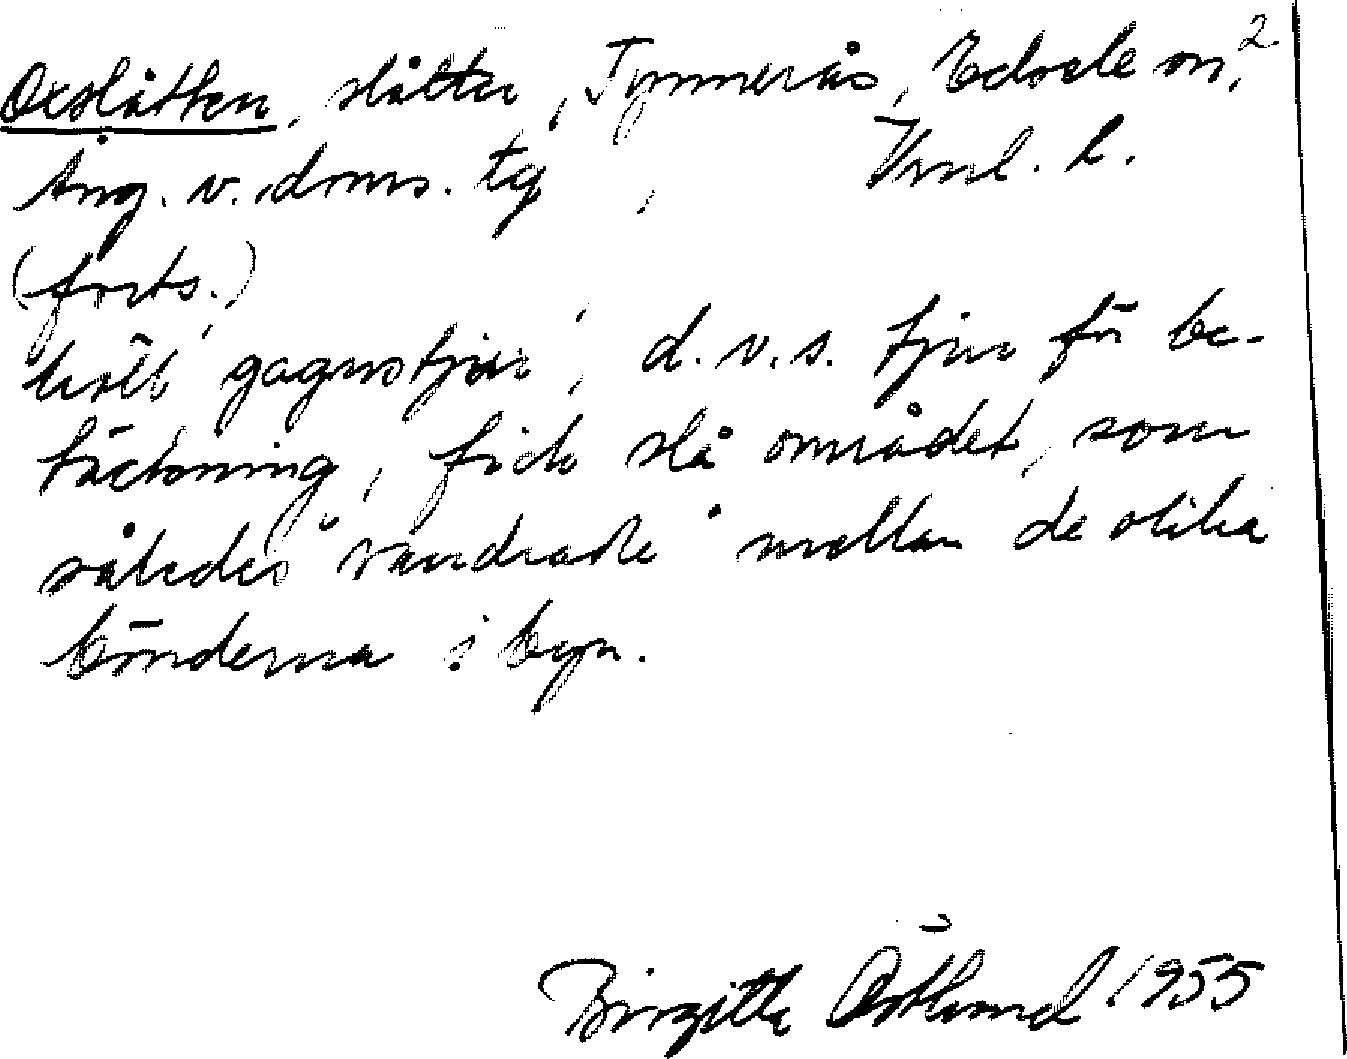 Oxslåtten, slåtter, Tymmerås, Edsele sn, 2
Ång. v. doms. tg, Vnl. l.
(forts.)
höll gagnstjur, d.v.s. tjur för be-
täckning, fick slå området, som
således "vandrade" mellan de olika
bönderna i byn.
Birgitta Östlund 1955